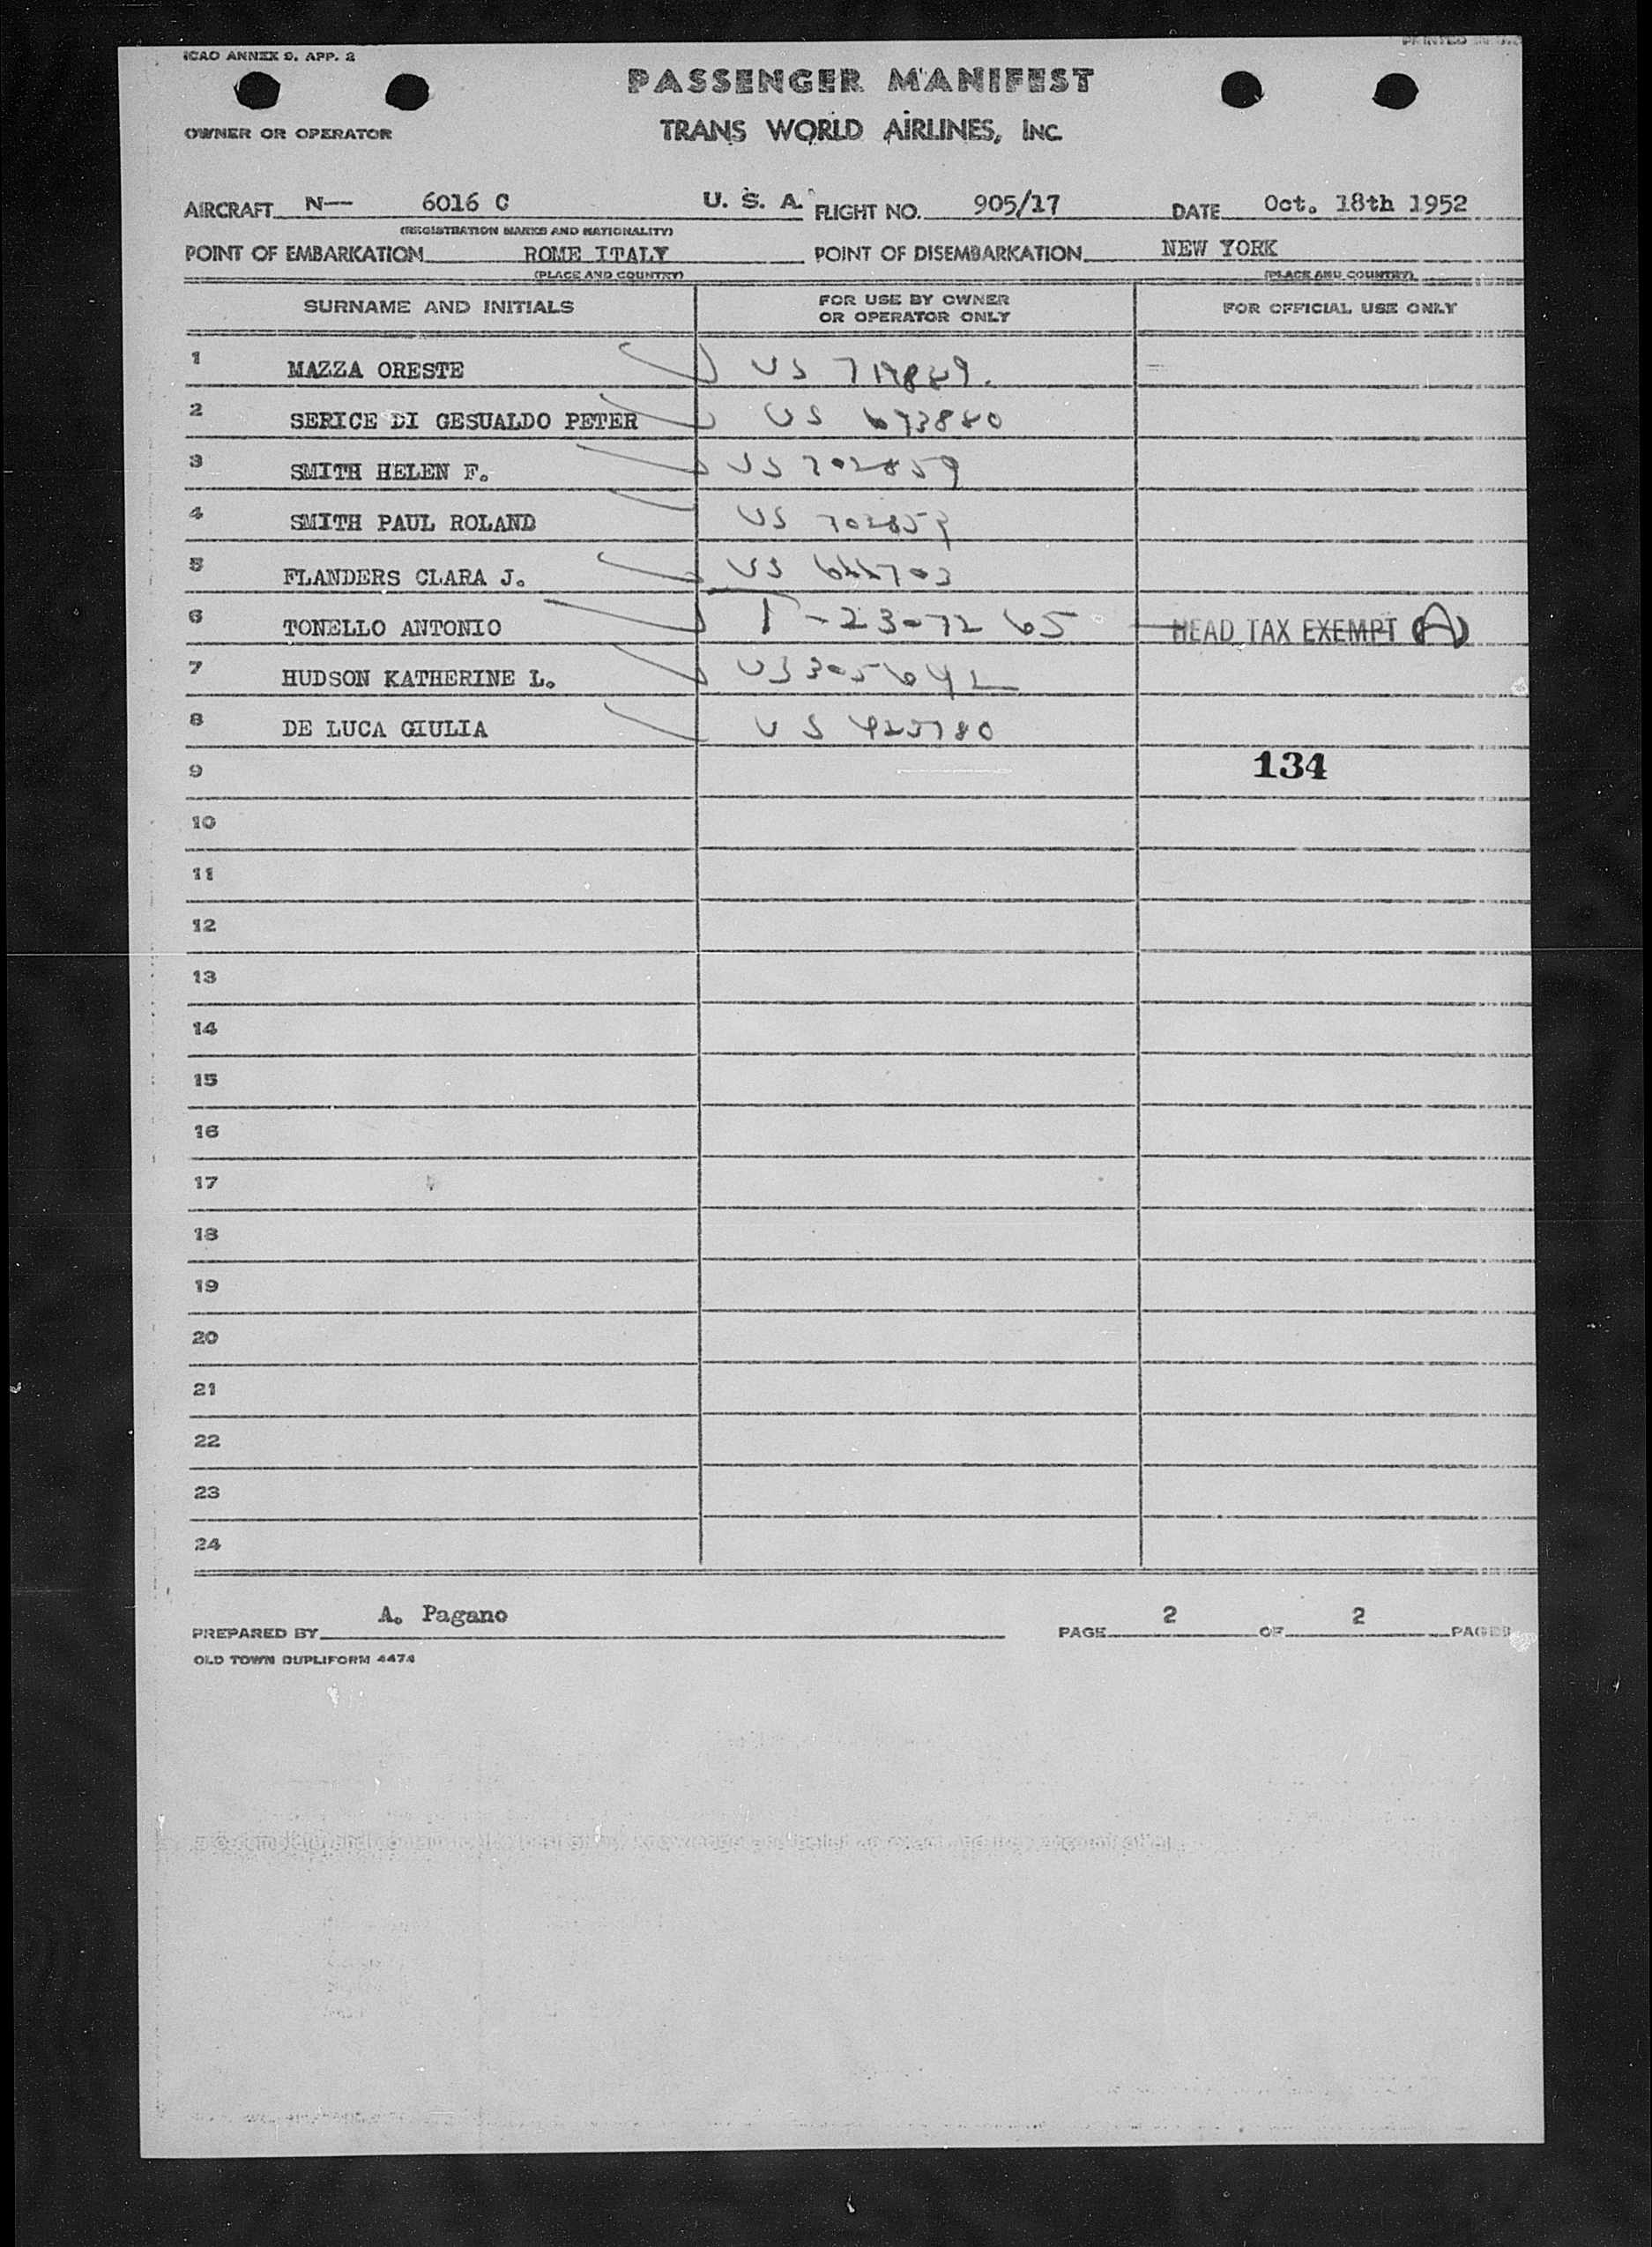 ICAO ANNEX 9, APP. 2
PASSENGER MANIFEST
OWNER OR OPERATOR
TRANS WORLD AIRLINES, INC.
AIRCRAFT N— 6016 C U. S. A. FLIGHT NO. 905/17 DATE Oct. 18th 1952
(REGISTRATION MARKS AND NATIONALITY)
POINT OF EMBARKATION ROME ITALY POINT OF DISEMBARKATION NEW YORK
(PLACE AND COUNTRY) (PLACE AND COUNTRY)
SURNAME AND INITIALS FOR USE BY OWNER OR OPERATOR ONLY FOR OFFICIAL USE ONLY
1 MAZZA ORESTE US
2 SERICE DI GESUALDO PETER US 673880
3 SMITH HELEN F. US 702859
4 SMITH PAUL ROLAND US 702859
5 FLANDERS CLARA J. US
6 TONELLO ANTONIO T-23-72 65 HEAD TAX EXEMPT (A)
7 HUDSON KATHERINE L. US 305642
8 DE LUCA GIULIA US
9 134
10
11
12
13
14
15
16
17
18
19
20
21
22
23
24
PREPARED BY A. Pagano PAGE 2 OF 2 PAGES
OLD TOWN DUPLIFORM 4474